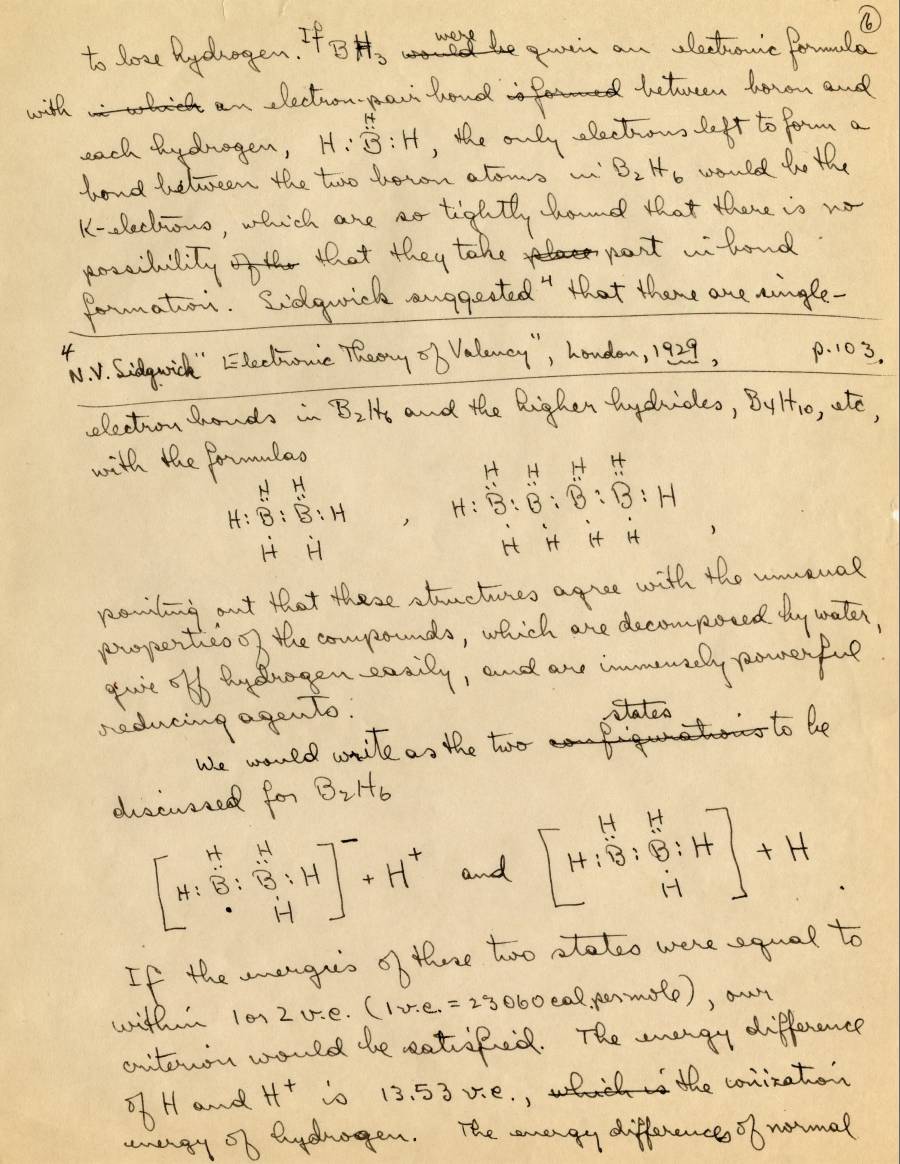 6
to lose hydrogen. If BH3 would be were given an electronic formula
with in which an electron-pair bond is formed between boron and
H
each hydrogen, H : B : H, the only electrons left to form a
bond between the two boron atoms in B2H6 would be the
K-electrons, which are so tightly bound that there is no
possibility of the that they take place part in bond
formation. Sidgwick suggested4 that there are single-
4 N.V. Sidgwick "Electronic Theory of Valency", London, 1929, p. 103.
electron bonds in B2H6 and the higher hydrides, B4H10, etc,
with the formulas
H H H H H H
H : B : B : H , H : B : B : B : B : H
H H H H H H ,
pointing out that these structures agree with the unusual
properties of the compounds, which are decomposed by water,
give off hydrogen easily, and are immensely powerful
reducing agents.
We would write as the two configurations states to be
discussed for B2H6
H H H H
[H : B : B : H]- + H+ and [H : B : B : H] + H
. H H .
If the energies of these two states were equal to
within 1 or 2 v.e. (1 v.e. = 23060 cal. per mole), our
criterion would be satisfied. The energy difference
of H and H+ is 13.53 v.e., which is the ionization
energy of hydrogen. The energy differences of normal